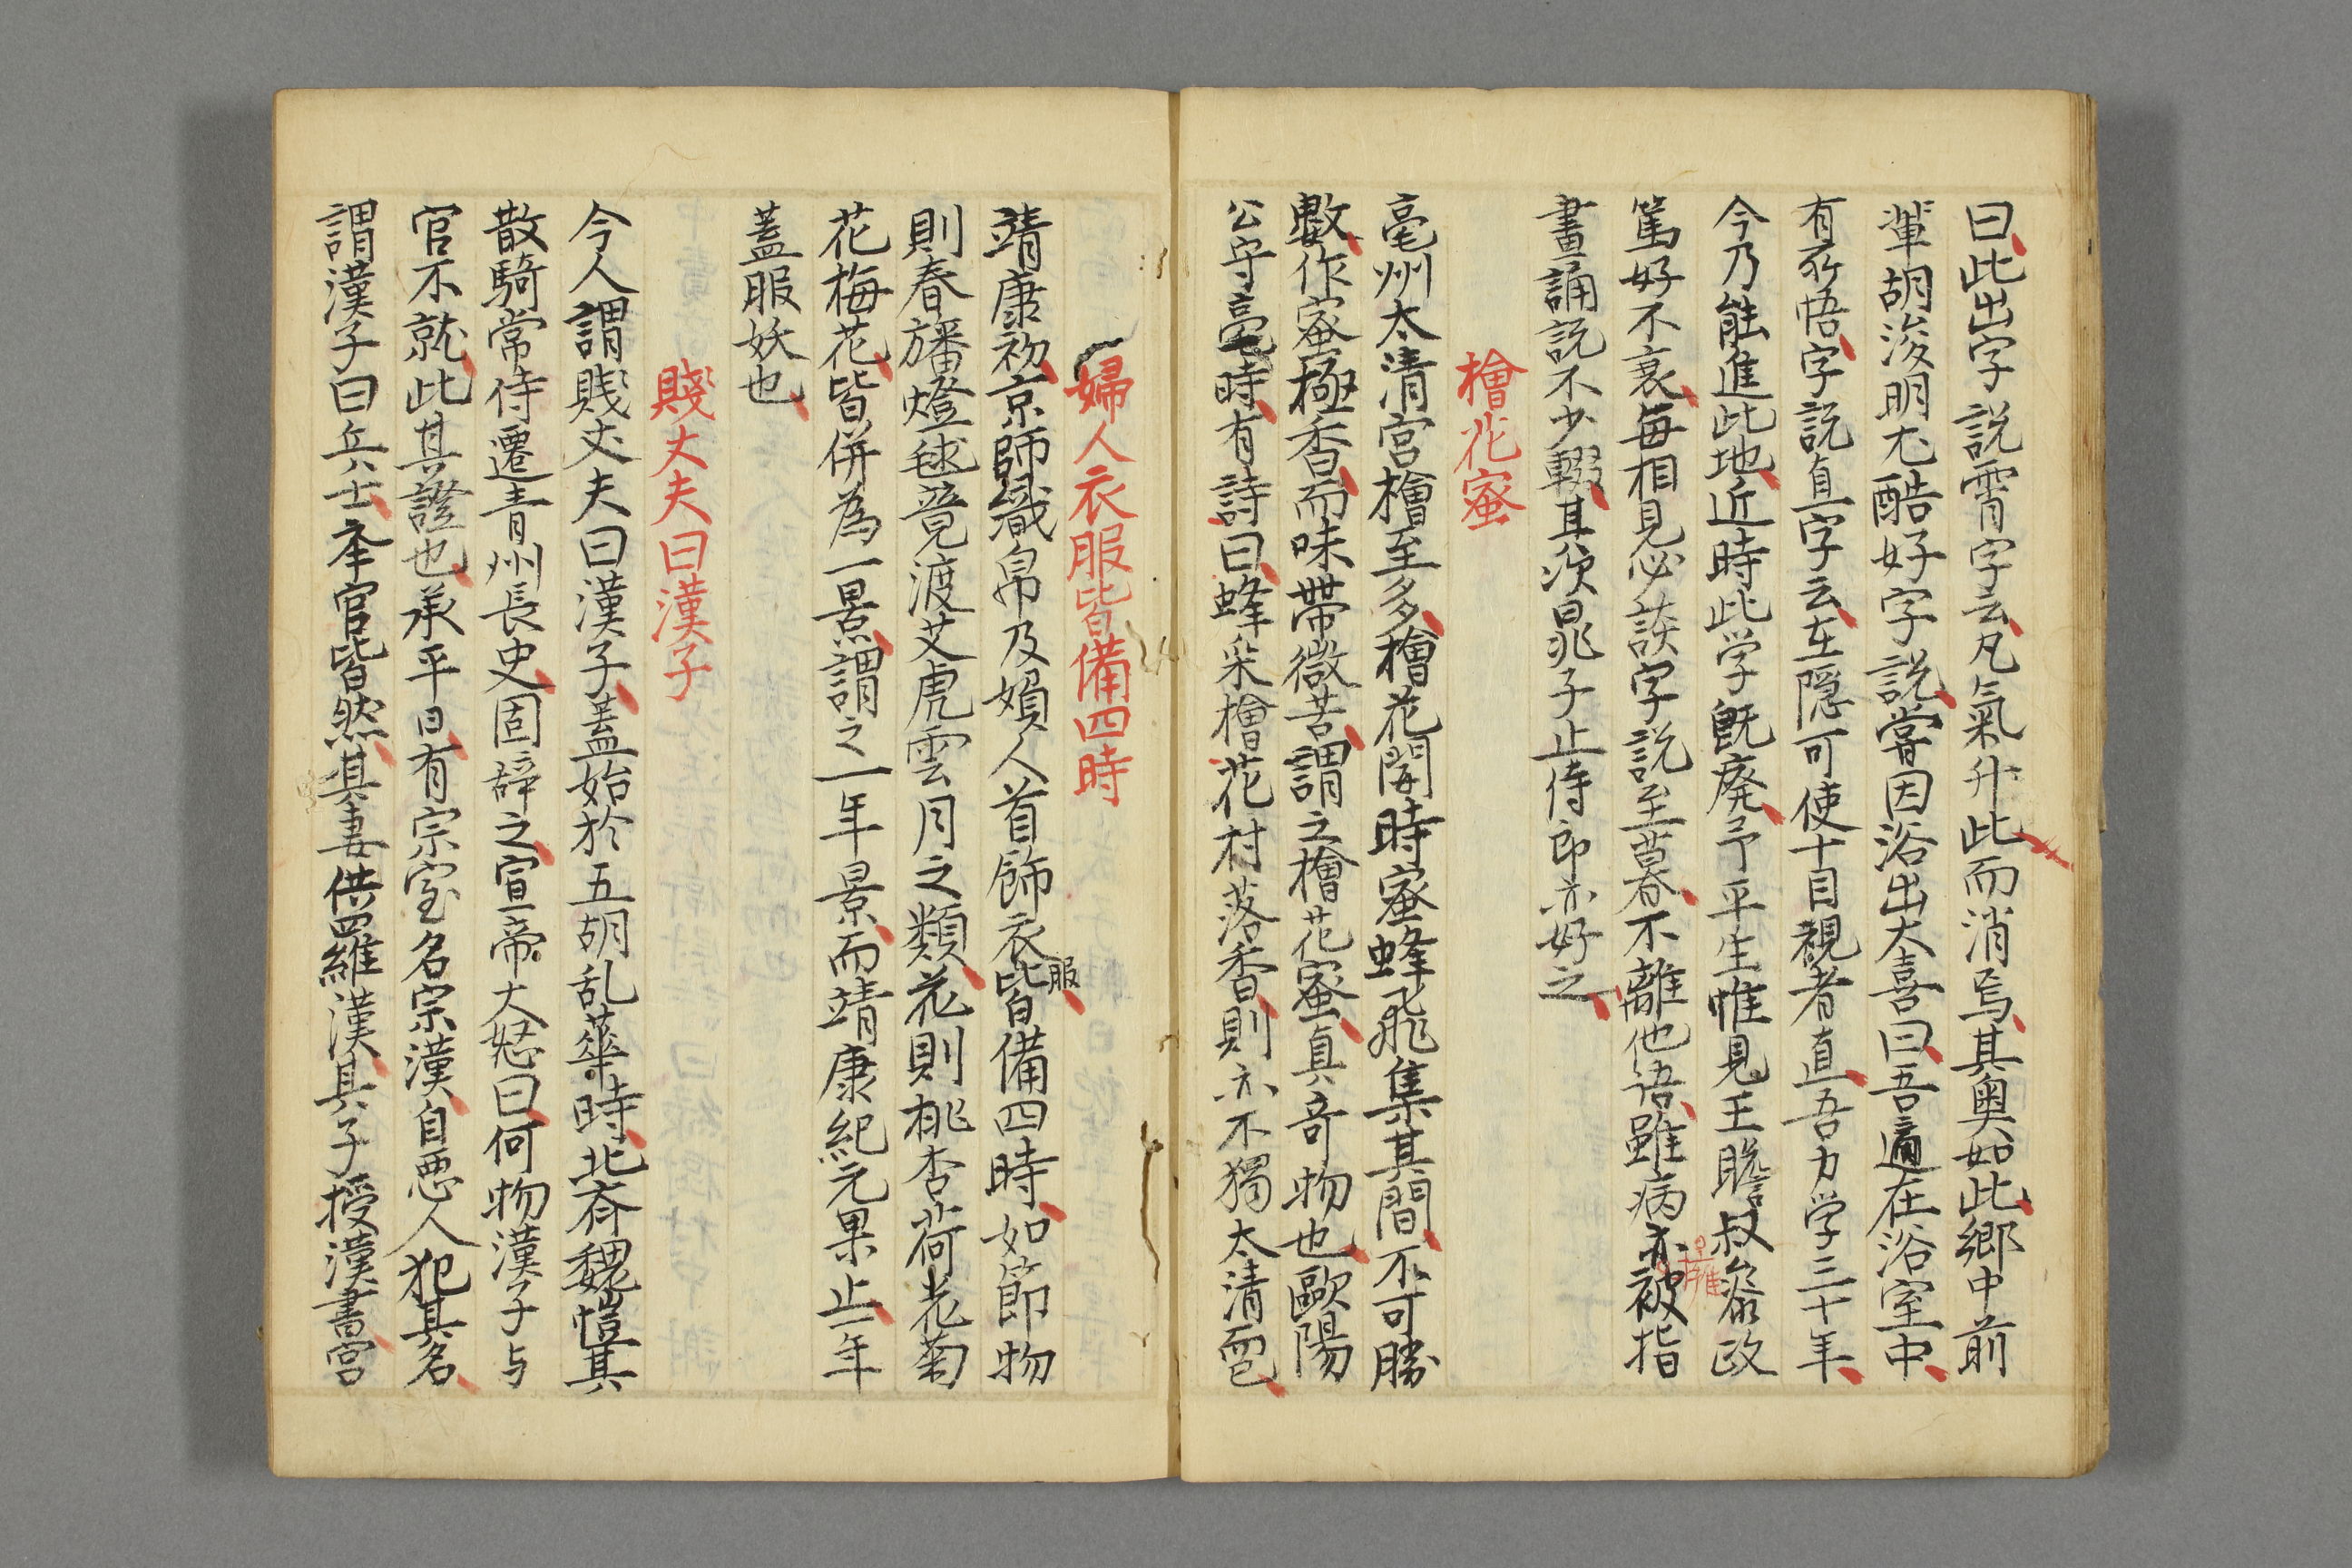 曰此出字説霄字云凡氣升此而消焉其奥如此鄉中前
輩胡浚明尤酷好字説嘗因浴出大喜曰吾適在浴室中
有所悟字説直字云在隠可使十目視者直吾力学三十年
今乃能進此地近時此学既廃予平生惟見王瞻叔叅政
篤好不衰每相見必談字説至暮不離他语雖病亦被指
擁
畫誦説不少輟其次晁子止侍郎亦好之
檜花蜜
亳州太清宮檜至多檜花開時蜜蜂飛集其間不可勝
數作蜜極香而味帶微苦謂之檜花蜜真奇物也歐陽
公守亳時有詩曰蜂采檜花村落香則亦不獨太清而已
婦人衣服皆備四時
靖康初京師織帛及婦人首飾衣皆備四時如節物
服
則春旛燈毬竟渡艾虎雲月之類花則桃杏荷花菊
花梅花皆併為一景謂之一年景而靖康紀元果止一年
蓋服妖也
賤丈夫曰漢子
今人謂賤丈夫曰漢子蓋始於五胡乱華時北斉魏愷其
散騎常侍遷青州長史固辞之宣帝大怒曰何物漢子与
官不就此其證也承平日有宗室名宗漢自悪人犯其名
謂漢子曰兵士举官皆然其妻供羅漢其子授漢書宮